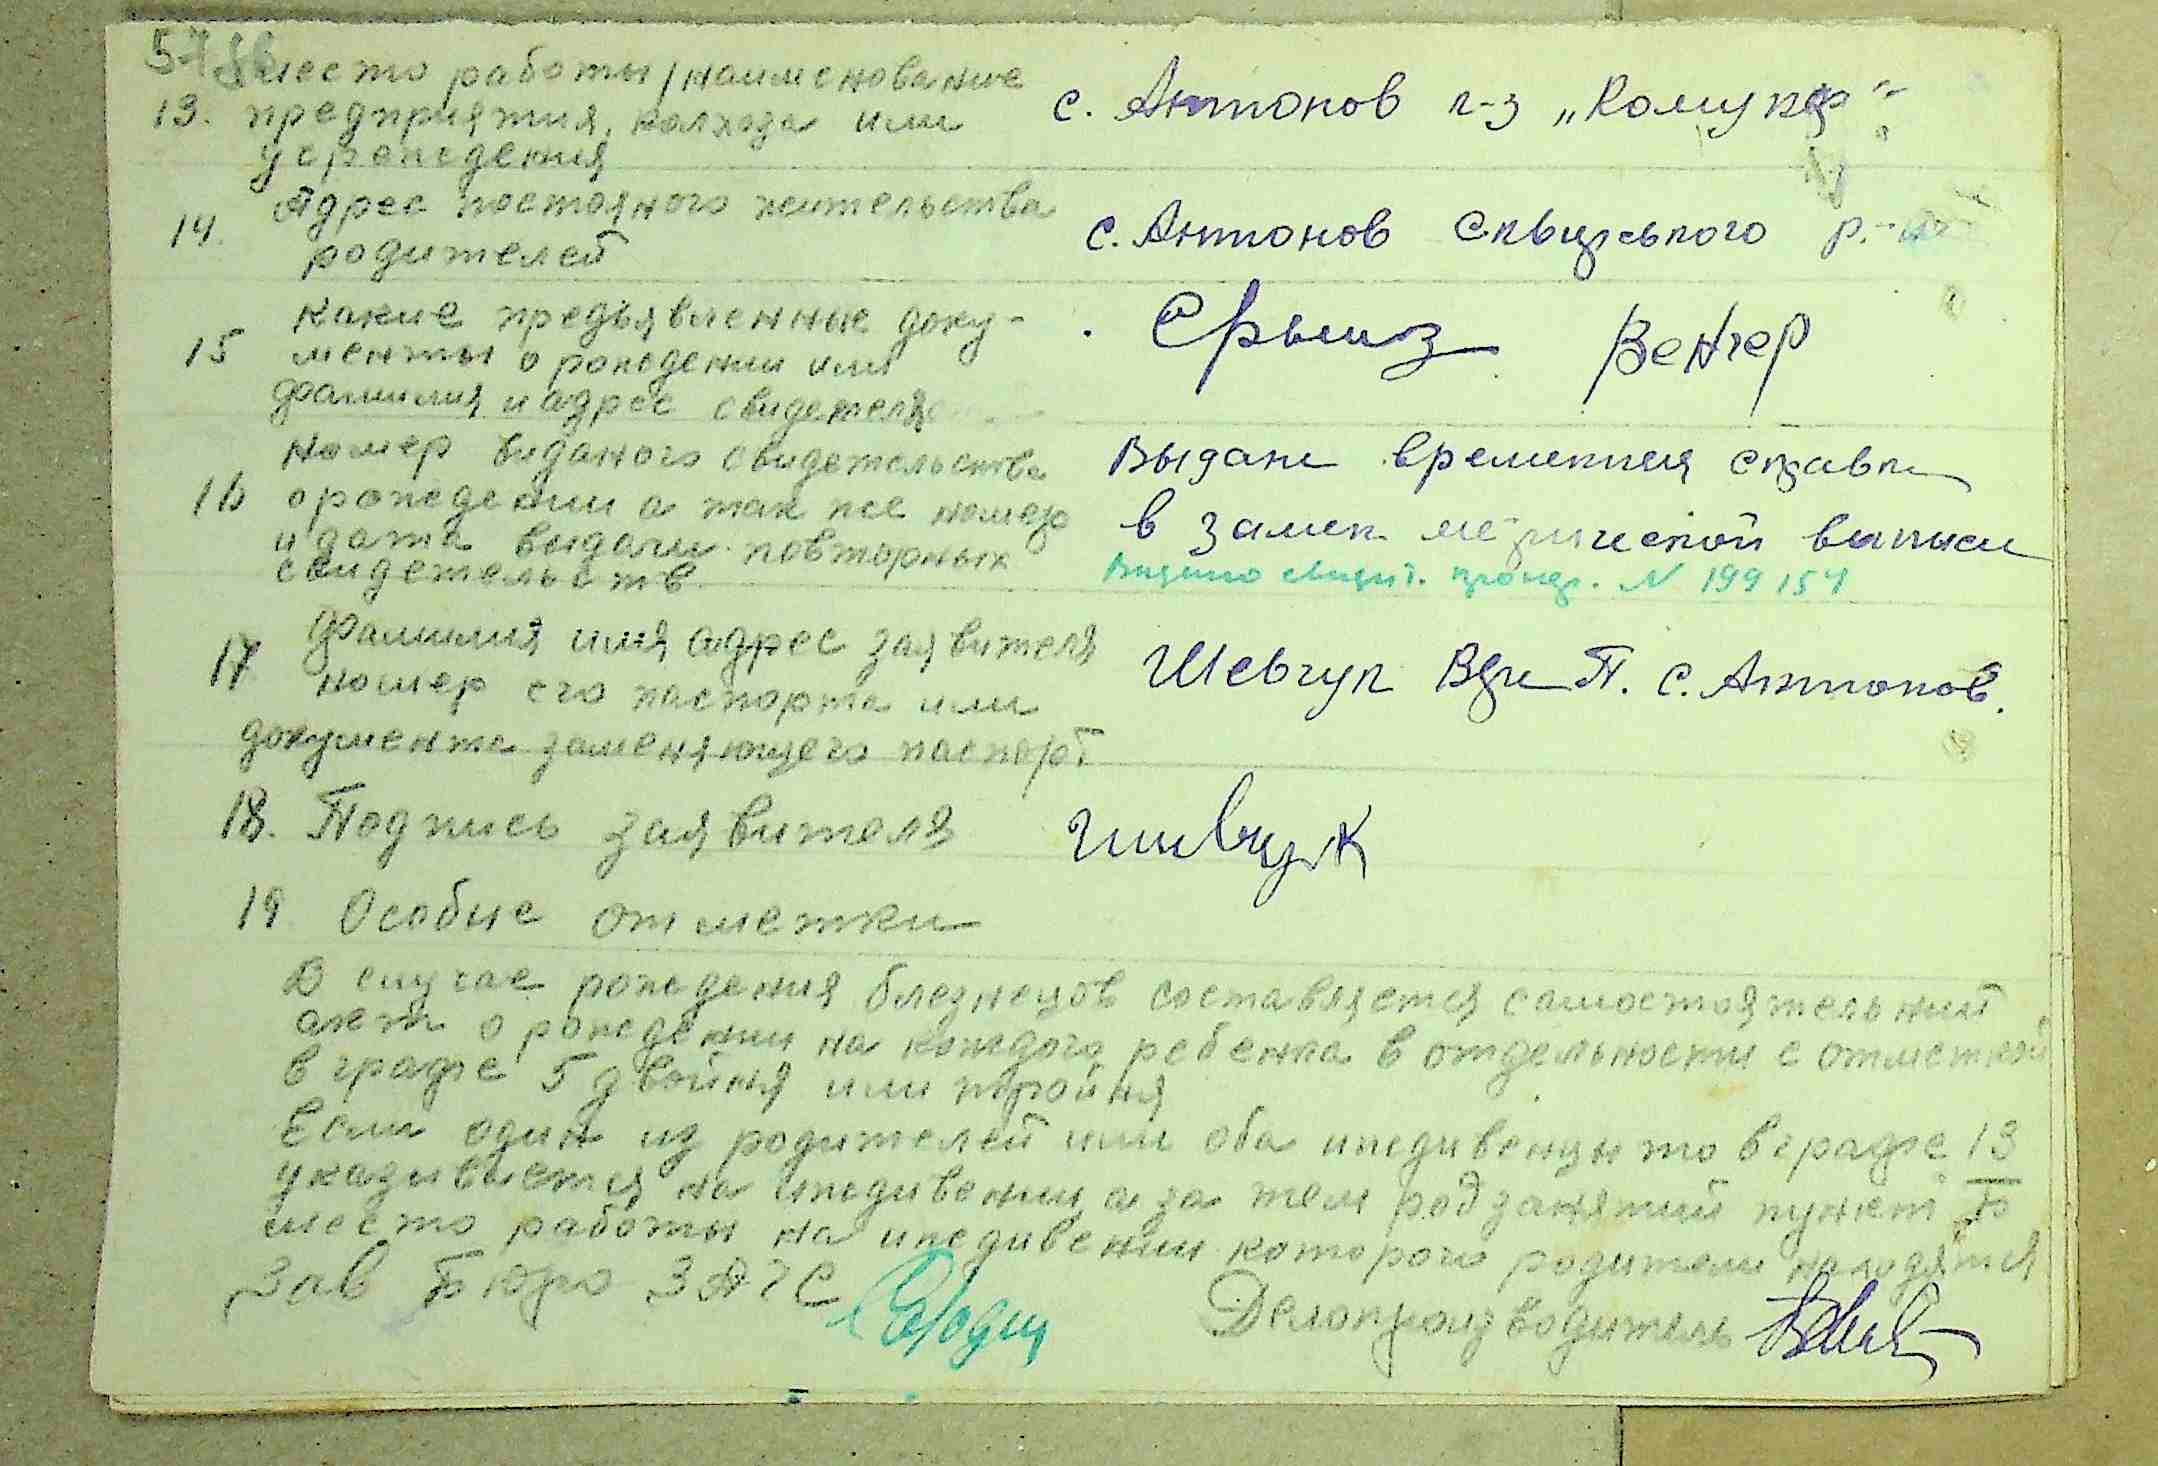 место работы /наименование
13. предприятия, колхоза или
учреждения
с. Антонов к-з „Комунар"
14. Адрес постоянного жительства
родителей
с. Антонов Сквирського р-
15 какие предъявленные доку-
менты о рождении или
фамилия и адрес свидетеля
Венгер
16 номер виданого свидетельства
о рождении а так же номер
и дата выдачи повторных
свидетельств
Выдана временная справка
в замен метрической выписи
N 199154
17 Фамилия имя адрес заявителя
номер его паспорта или
документа заменяющего паспорт
Шевчук П. с. Антонов.
18. Подпись заявителя
шивчук
19 Особые отметки
В случае рождения близнецов составляется самостоятельний
акт о рождении на каждого ребенка в отдельности с отметкой
в графе 5 двойня или тройня
Если один из родителей или оба иждивенцы то в графе 13
указивается на иждивении а за тем род занятий пункт Б
место работы на иждивении которого родители находятся
Зав Бюро ЗАГС
Делопроизводитель